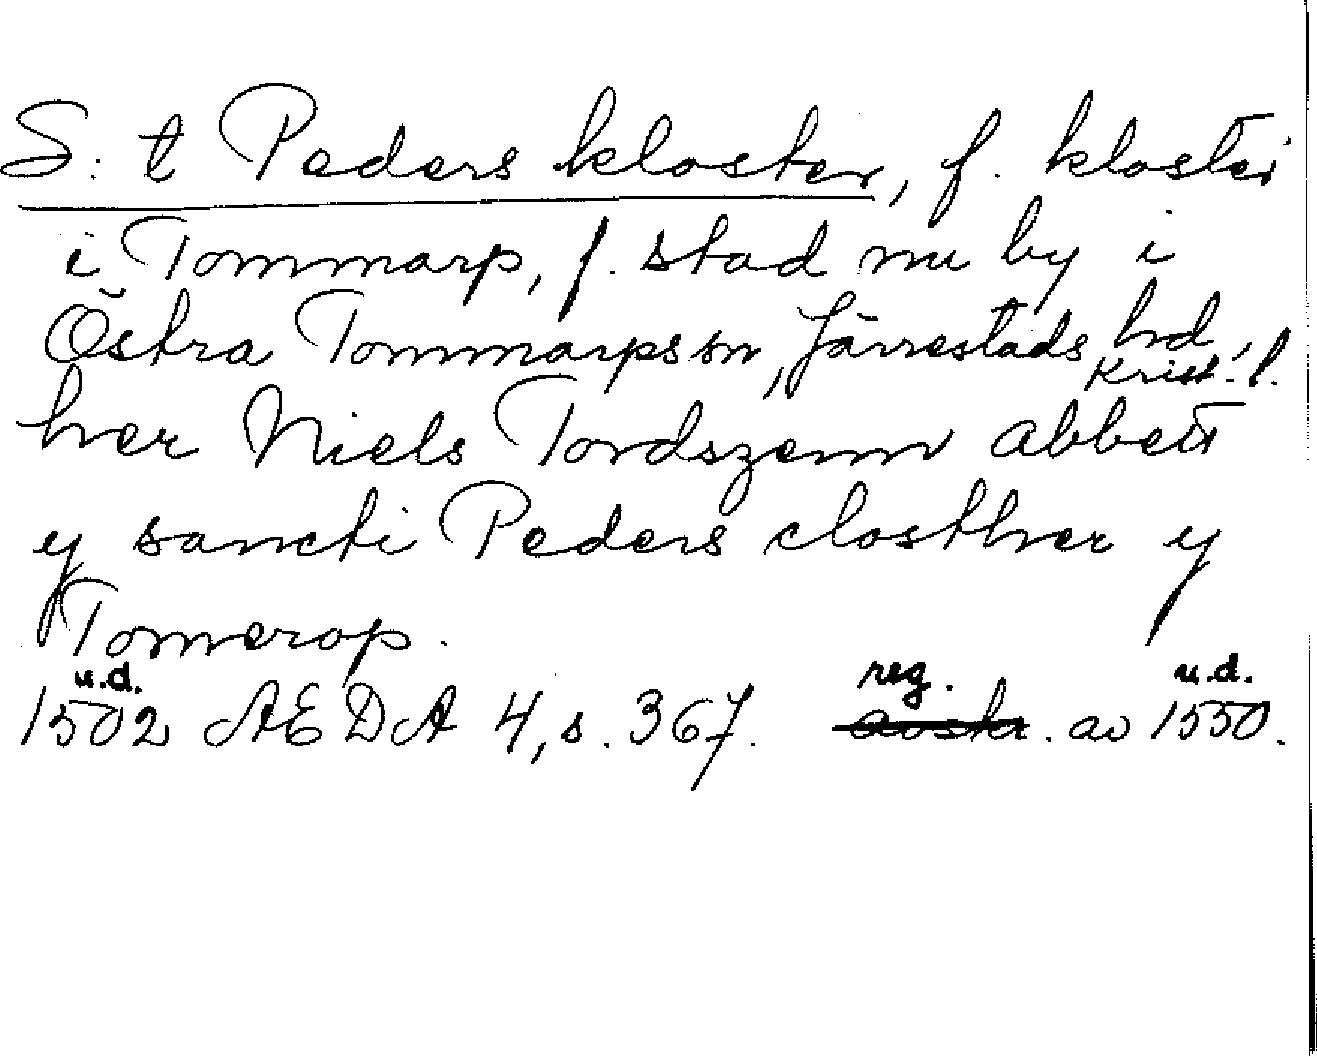 S:t Peders kloster, f. kloster
i Tommarp, f. stad nu by i
Östra Tommarps sn, Järrestads hd,
Krist. l.
her Niels Tordszenn abbett
y sancti Peders closther y
Tomerop.
u.d. reg. u.d.
1502 AEDA 4, s. 367. avskr. av 1550.